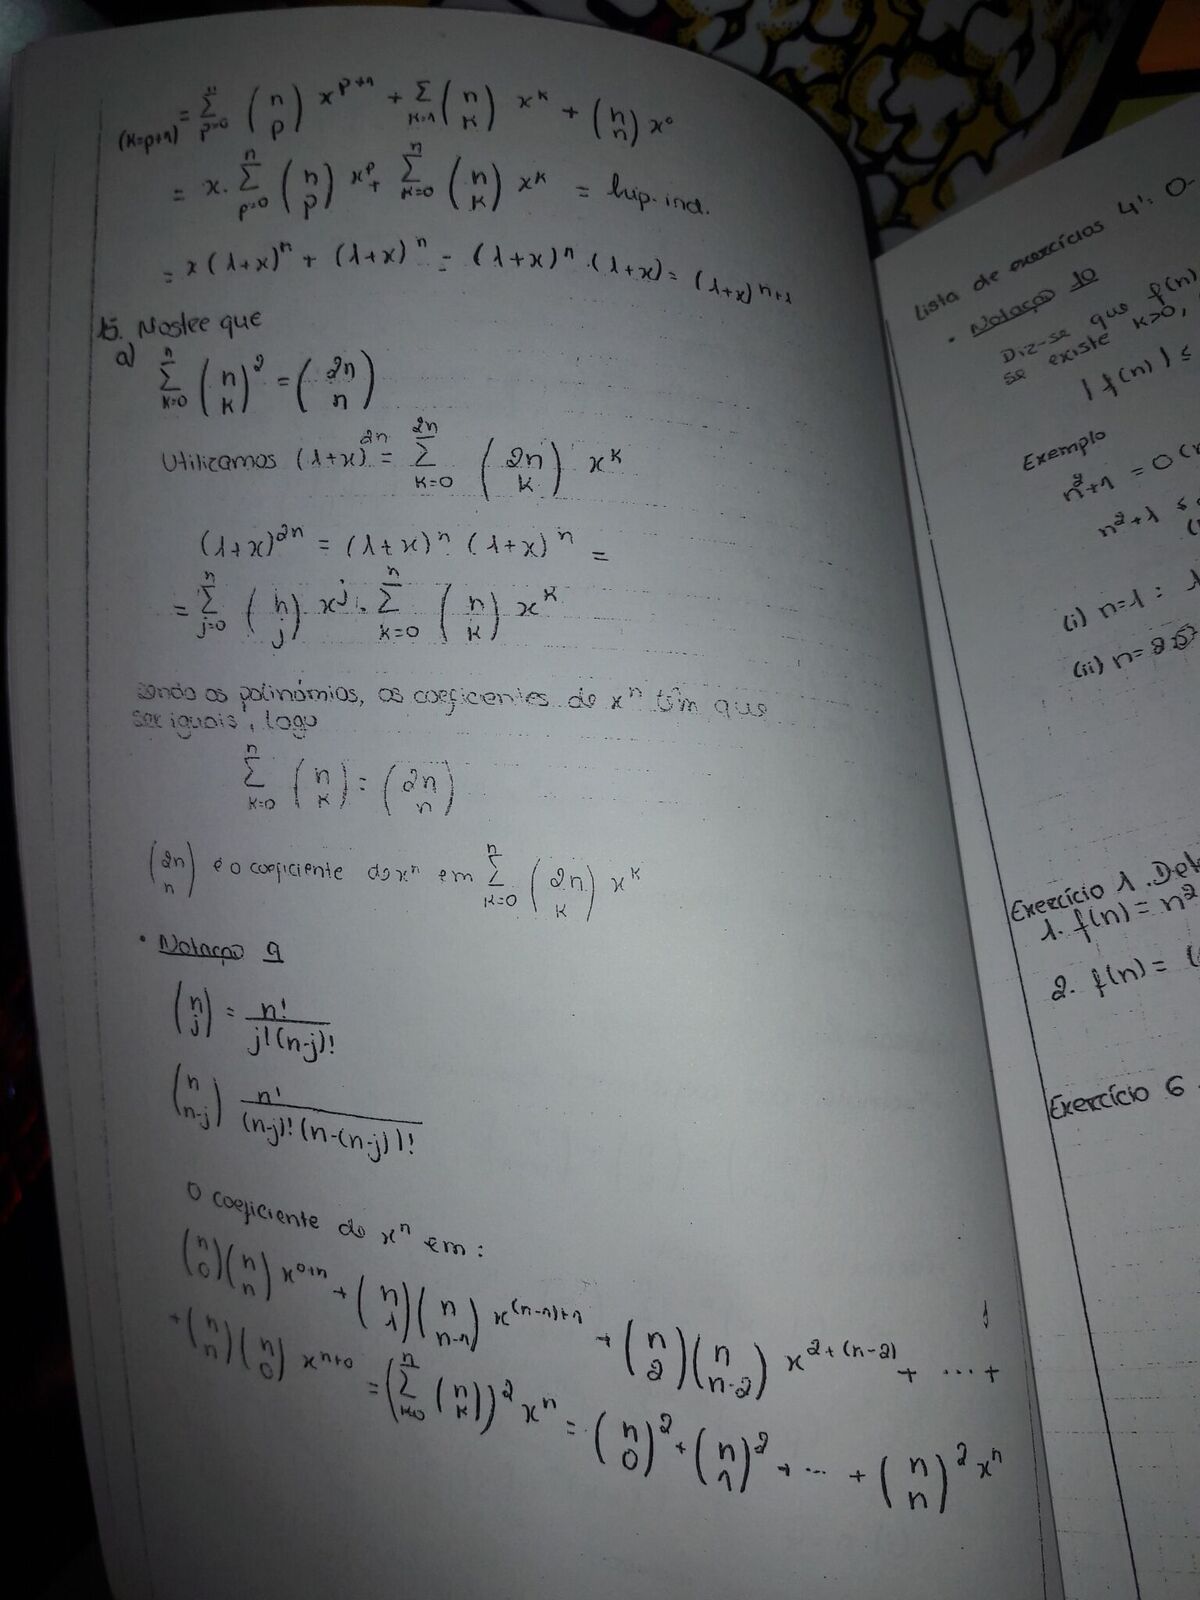 (k=p+1) = Σ_{p=0}^{n} (n p) x^{p+1} + Σ_{k=1} (n k) x^k + (n n) x^0
= x. Σ_{p=0}^{n} (n p) x^p + Σ_{k=0}^{n} (n k) x^k = hip. ind.
= x(1+x)^n + (1+x)^n = (1+x)^n . (1+x) = (1+x)^{n+1}
15. Mostre que
a) Σ_{k=0}^{n} (n k)^2 = (2n n)
Utilizamos (1+x)^{2n} = Σ_{k=0}^{2n} (2n k) x^k
(1+x)^{2n} = (1+x)^n . (1+x)^n =
= Σ_{j=0}^{n} (n j) x^j . Σ_{k=0}^{n} (n k) x^k
sendo os polinómios, os coeficientes de x^n têm que
ser iguais, logo
Σ_{k=0}^{n} (n k) = (2n n)
(2n n) é o coeficiente de x^n em Σ_{k=0}^{n} (2n k) x^k
• Notação 9
(n j) = n! / j!(n-j)!
(n n-j) n! / (n-j)!(n-(n-j))!
O coeficiente de x^n em:
(n 0)(n n) x^{0+n} + (n 1)(n n-1) x^{(n-1)+1} + (n 2)(n n-2) x^{2+(n-2)} + ... +
+ (n n)(n 0) x^{n+0} = (Σ_{k=0}^{n} (n k))^2 x^n = (n 0)^2 + (n 1)^2 + ... + (n n)^2 x^n
Lista de exercícios 4': O-
• Notação 10
Diz-se que f(n)
se existe k>0,
|f(n)| ≤
Exemplo
n^2+1 = O(n
n^2+1 ≤
(i) n=1 : 1
(ii) n=2
Exercício 1. Det
1. f(n) = n^2
2. f(n) = (
Exercício 6